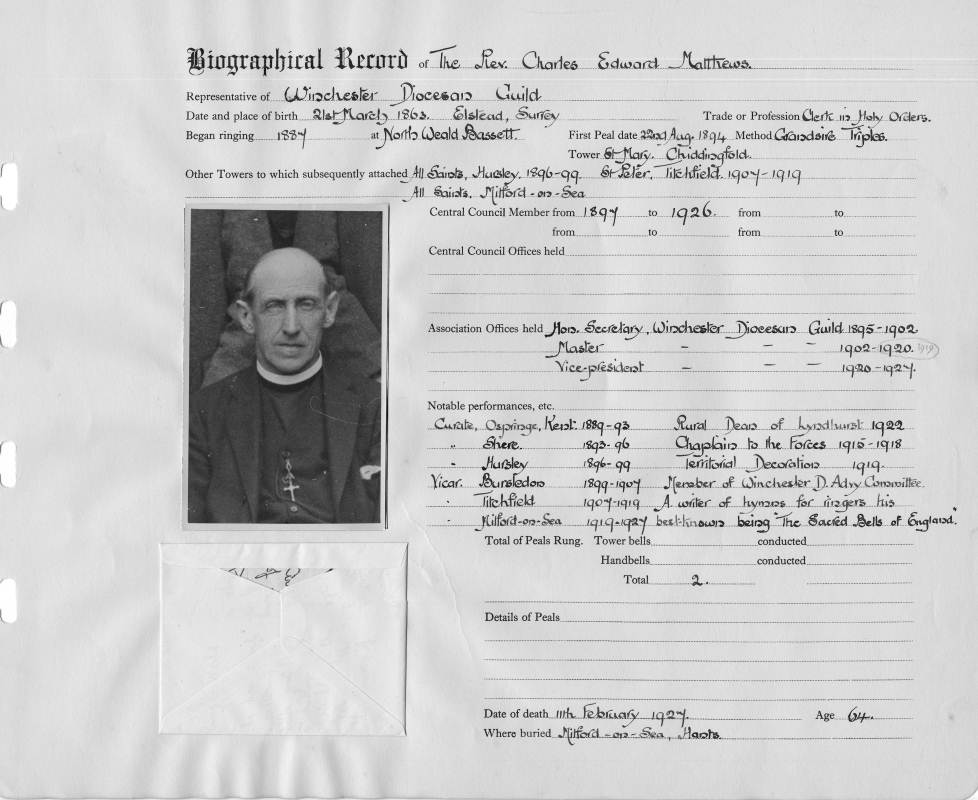 Biographical Record of The Rev. Charles Edward Matthews.
Representative of Winchester Diocesan Guild
Date and place of birth 21st March 1863. Elstead, Surrey Trade or Profession Clerk in Holy Orders.
Began ringing 1887 at North Weald Bassett. First Peal date 22nd Aug. 1894 Method Grandsire Triples.
Tower St Mary. Chiddingfold.
Other Towers to which subsequently attached All Saints, Hursley. 1896-99. St Peter. Titchfield. 1907-1919
All Saints. Milford-on-Sea
Central Council Member from 1897 to 1926. from to
from to from to
Central Council Offices held
Association Offices held Hon. Secretary, Winchester Diocesan Guild 1895-1902
Master - - - 1902-1920. 1919
Vice-president - - - 1920-1927.
Notable performances, etc.
Curate, Ospringe, Kent. 1889-93 Rural Dean of Lyndhurst 1922
" Shere. 1893-96 Chaplain to the Forces 1915-1918
" Hursley 1896-99 Territorial Decoration 1919.
Vicar. Bursledon 1899-1907 Member of Winchester D. Advy Committee.
" Titchfield 1907-1919 A writer of hymns for ringers his
" Milford-on-Sea 1919-1927 best-known being "The Sacred Bells of England."
Total of Peals Rung. Tower bells conducted
Handbells conducted
Total 2.
Details of Peals
Date of death 11th February 1927. Age 64.
Where buried Milford-on-Sea, Hants.